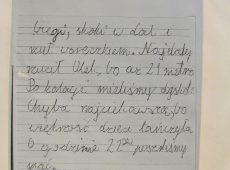 biegi, skoki w dal i
rzut woreczkiem. Najdalej
rzucił Olek, bo aż 21 metrów
Po kolacji mieliśmy dyskot
Chyba najciekawszą, bo
większość dzieci tańczyła
O godzinie 22⁰⁰ poszliśmy
spać.